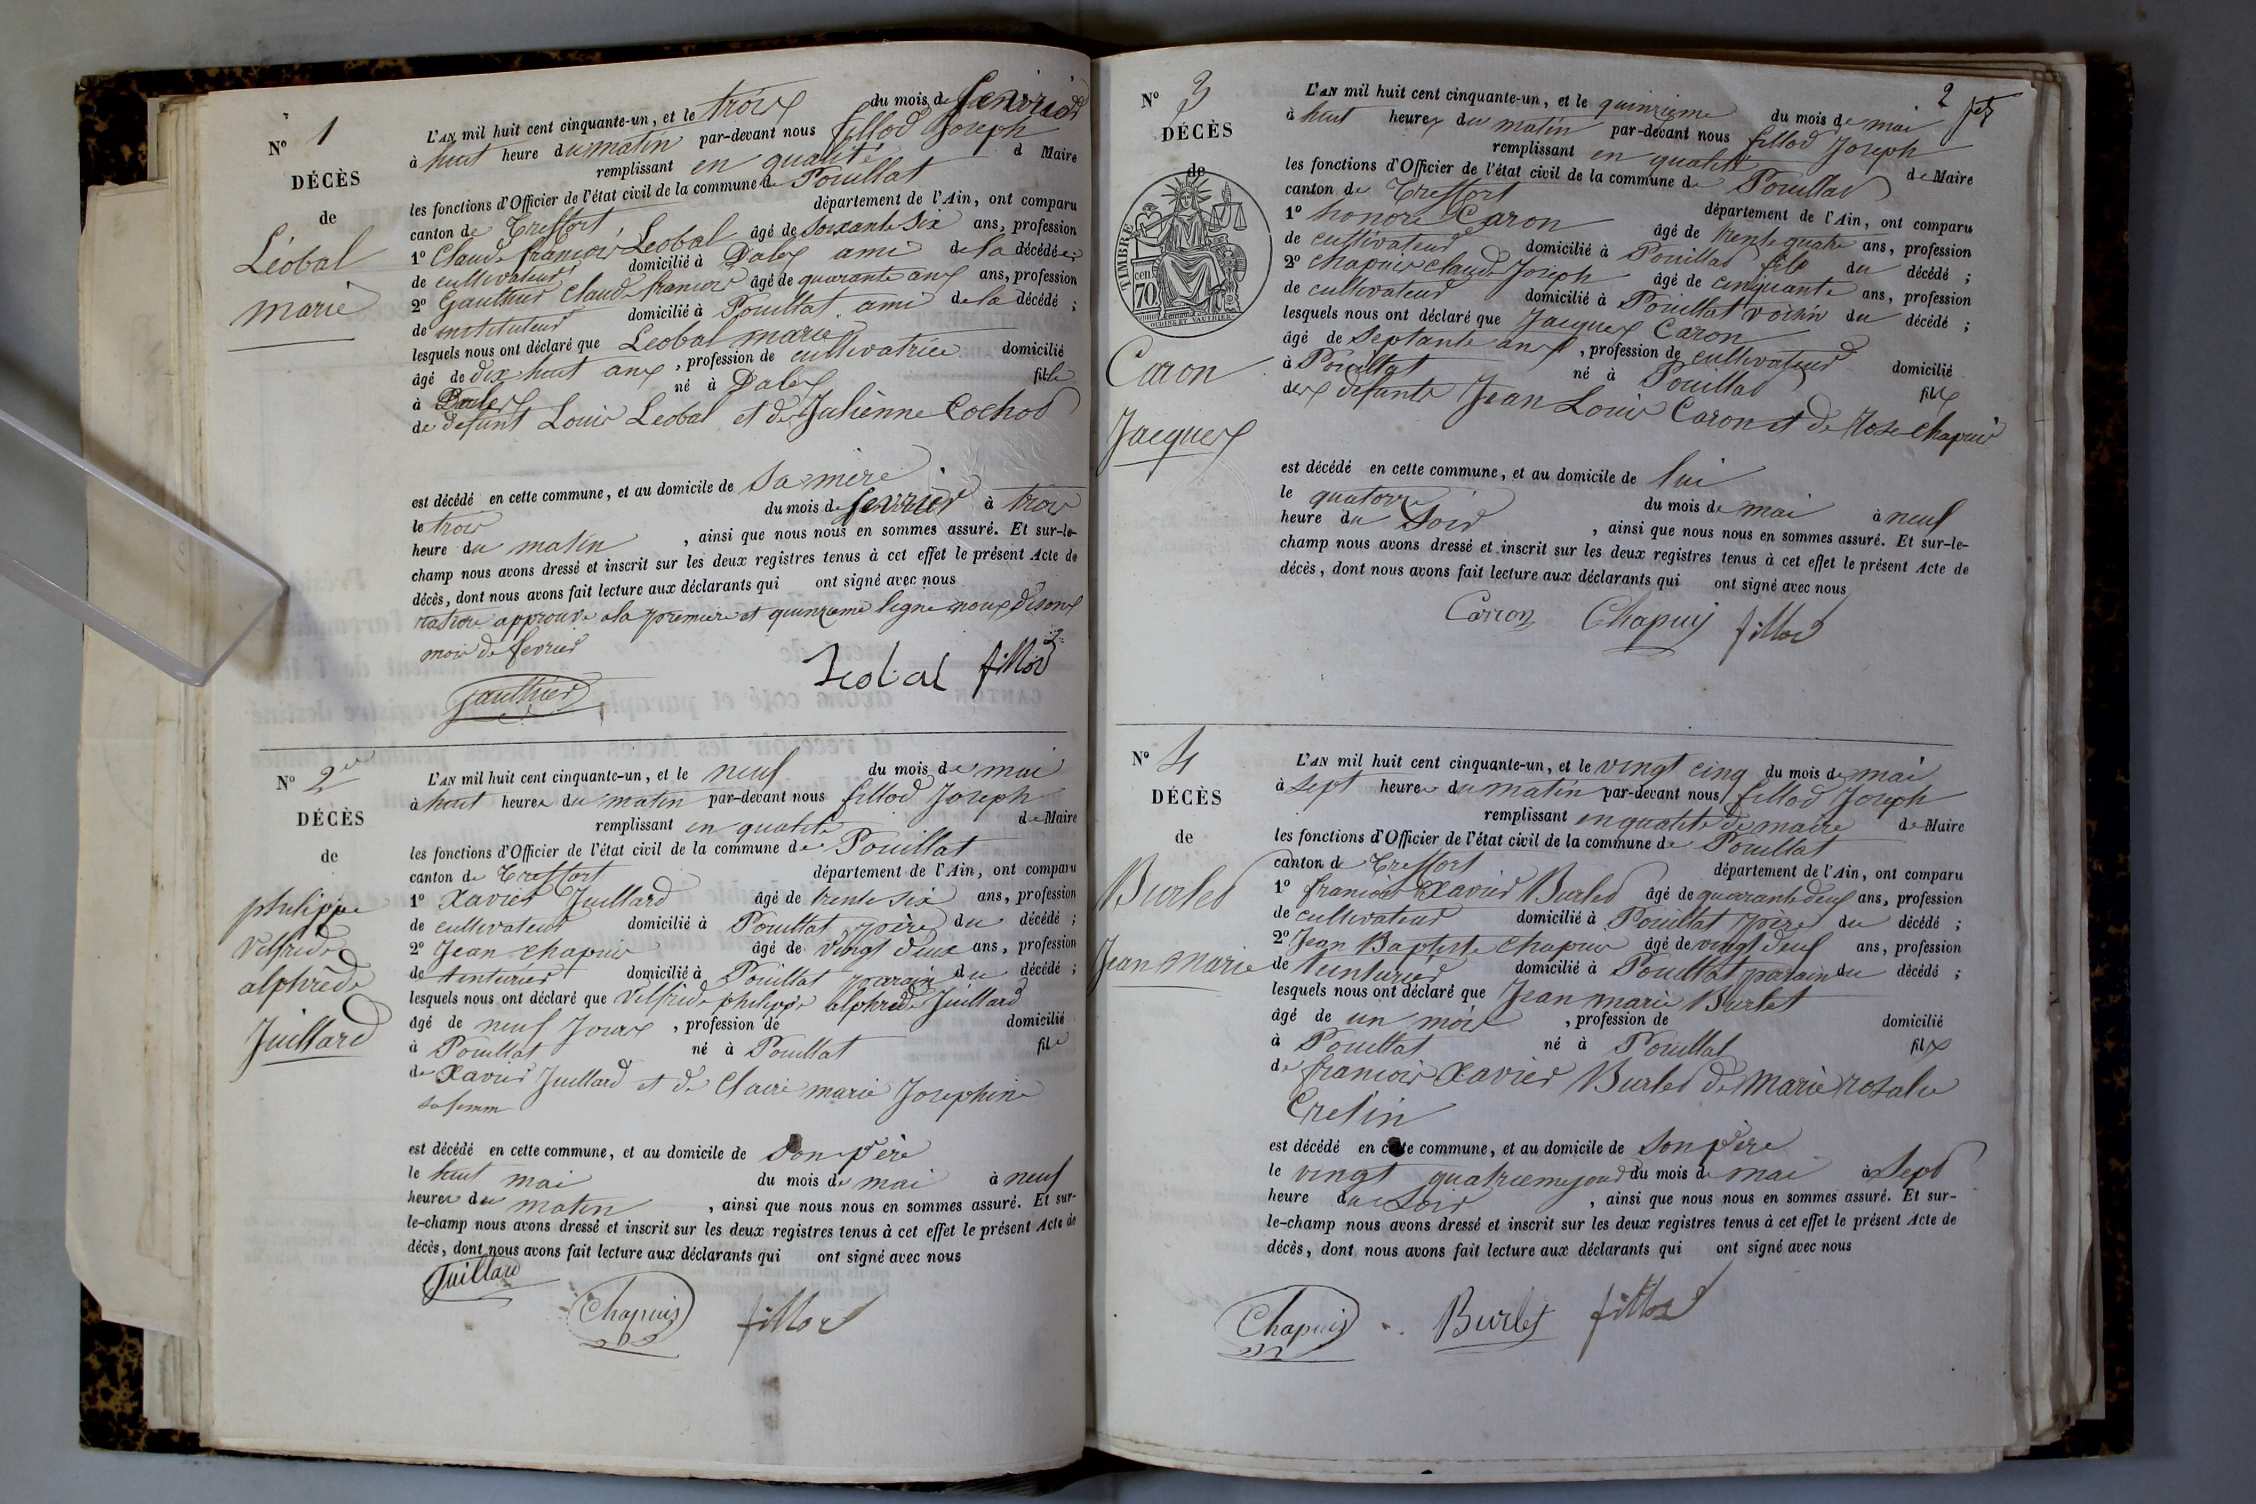 N° 1
DÉCÈS
de
Léobal
marie
L'AN mil huit cent cinquante-un, et le trois du mois de fevrier
à huit heure du matin par-devant nous fillod Joseph
remplissant en qualité d Maire
les fonctions d'Officier de l'état civil de la commune de Pouillat
canton de Treffort département de l'Ain, ont comparu
1° Claude françois Leobal âgé de soixante six ans, profession
de cultivateur domicilié à Dalex ami de la décédée;
2° Gauthier Claude francois âgé de quarante ans ans, profession
de instituteur domicilié à Pouillat ami de la décédé;
lesquels nous ont déclaré que Leobal marie
âgé de dix huit ans, profession de cultivatrice domicilié
à Dalex né à Dalex fille
de défunt Louis Leobal et de Julienne Cochod
est décédé en cette commune, et au domicile de sa mère
le trois du mois de fevrier à trois
heure du matin, ainsi que nous nous en sommes assuré. Et sur-le-
champ nous avons dressé et inscrit sur les deux registres tenus à cet effet le présent Acte de
décès, dont nous avons fait lecture aux déclarants qui ont signé avec nous
approuvé a la premiere et quinzieme ligne nous disons
mois de fevrier
Leobal fillod
Gauthier
N° 2
DÉCÈS
de
philippe
Vilfride
alphrède
Juillard
L'AN mil huit cent cinquante-un, et le neuf du mois de mai
à huit heures du matin par-devant nous fillod Joseph
remplissant en qualité de Maire
les fonctions d'Officier de l'état civil de la commune de Pouillat
canton de Treffort département de l'Ain, ont comparu
1° Xavier Juillard âgé de trente six ans, profession
de cultivateur domicilié à Pouillat, père du décédé;
2° Jean chapuis âgé de vingt deux ans, profession
de tinturier domicilié à Pouillat parain du décédé;
lesquels nous ont déclaré que Vilfride philippe alphrède Juillard
âgé de neuf Jours, profession de domicilié
à Pouillat né à Pouillat fil
de Xavier Juillard et de Claire marie Josephine
sa femm
est décédé en cette commune, et au domicile de son père
le huit mai du mois de mai à neuf
heures du matin, ainsi que nous nous en sommes assuré. Et sur-
le-champ nous avons dressé et inscrit sur les deux registres tenus à cet effet le présent Acte de
décès, dont nous avons fait lecture aux déclarants qui ont signé avec nous
Juillard
Chapuis fillod
2
N° 3
DÉCÈS
de
TIMBRE
70
cen
OUDINE ET VAUTHIER
Caron
Jacques
L'AN mil huit cent cinquante-un, et le quinzieme du mois de mai
à huit heures du matin par-devant nous fillod Joseph
remplissant en qualité de Maire
les fonctions d'Officier de l'état civil de la commune de Pouillat
canton de Treffort département de l'Ain, ont comparu
1° honoré Caron âgé de trente quatre ans, profession
de cultivateur domicilié à Pouillat fils du décédé;
2° chapuis claude Joseph âgé de cinquante ans, profession
de cultivateur domicilié à Pouillat voisin du décédé;
lesquels nous ont déclaré que Jacques Caron
âgé de septante ans, profession de cultivateur domicilié
à Pouillat né à Pouillat fils
des défunts Jean Louis Caron et de Rose chapuis
est décédé en cette commune, et au domicile de lui
le quatorze du mois de mai à neuf
heure du soir, ainsi que nous nous en sommes assuré. Et sur-le-
champ nous avons dressé et inscrit sur les deux registres tenus à cet effet le présent Acte de
décès, dont nous avons fait lecture aux déclarants qui ont signé avec nous
Carron Chapuis fillod
N° 4
DÉCÈS
de
Burlet
Jean marie
L'AN mil huit cent cinquante-un, et le vingt cinq du mois de mai
à sept heures du matin par-devant nous fillod Joseph
remplissant en qualité de maire de Maire
les fonctions d'Officier de l'état civil de la commune de Pouillat
canton de Treffort département de l'Ain, ont comparu
1° francois Xavier Burlet âgé de quarante deuf ans, profession
de cultivateur domicilié à Pouillat père du décédé;
2° Jean Baptiste Chapuis âgé de vingt deuf ans, profession
de teinturier domicilié à Pouillat parain du décédé;
lesquels nous ont déclaré que Jean marie Burlet
âgé de un mois, profession de domicilié
à Pouillat né à Pouillat fils
de francois Xavier Burlet de Marie rosalie
Cretin
est décédé en cette commune, et au domicile de son père
le vingt quatriemejour du mois de mai à Sept
heure du Soir, ainsi que nous nous en sommes assuré. Et sur-
le-champ nous avons dressé et inscrit sur les deux registres tenus à cet effet le présent Acte de
décès, dont nous avons fait lecture aux déclarants qui ont signé avec nous
Chapuis Burlet fillod